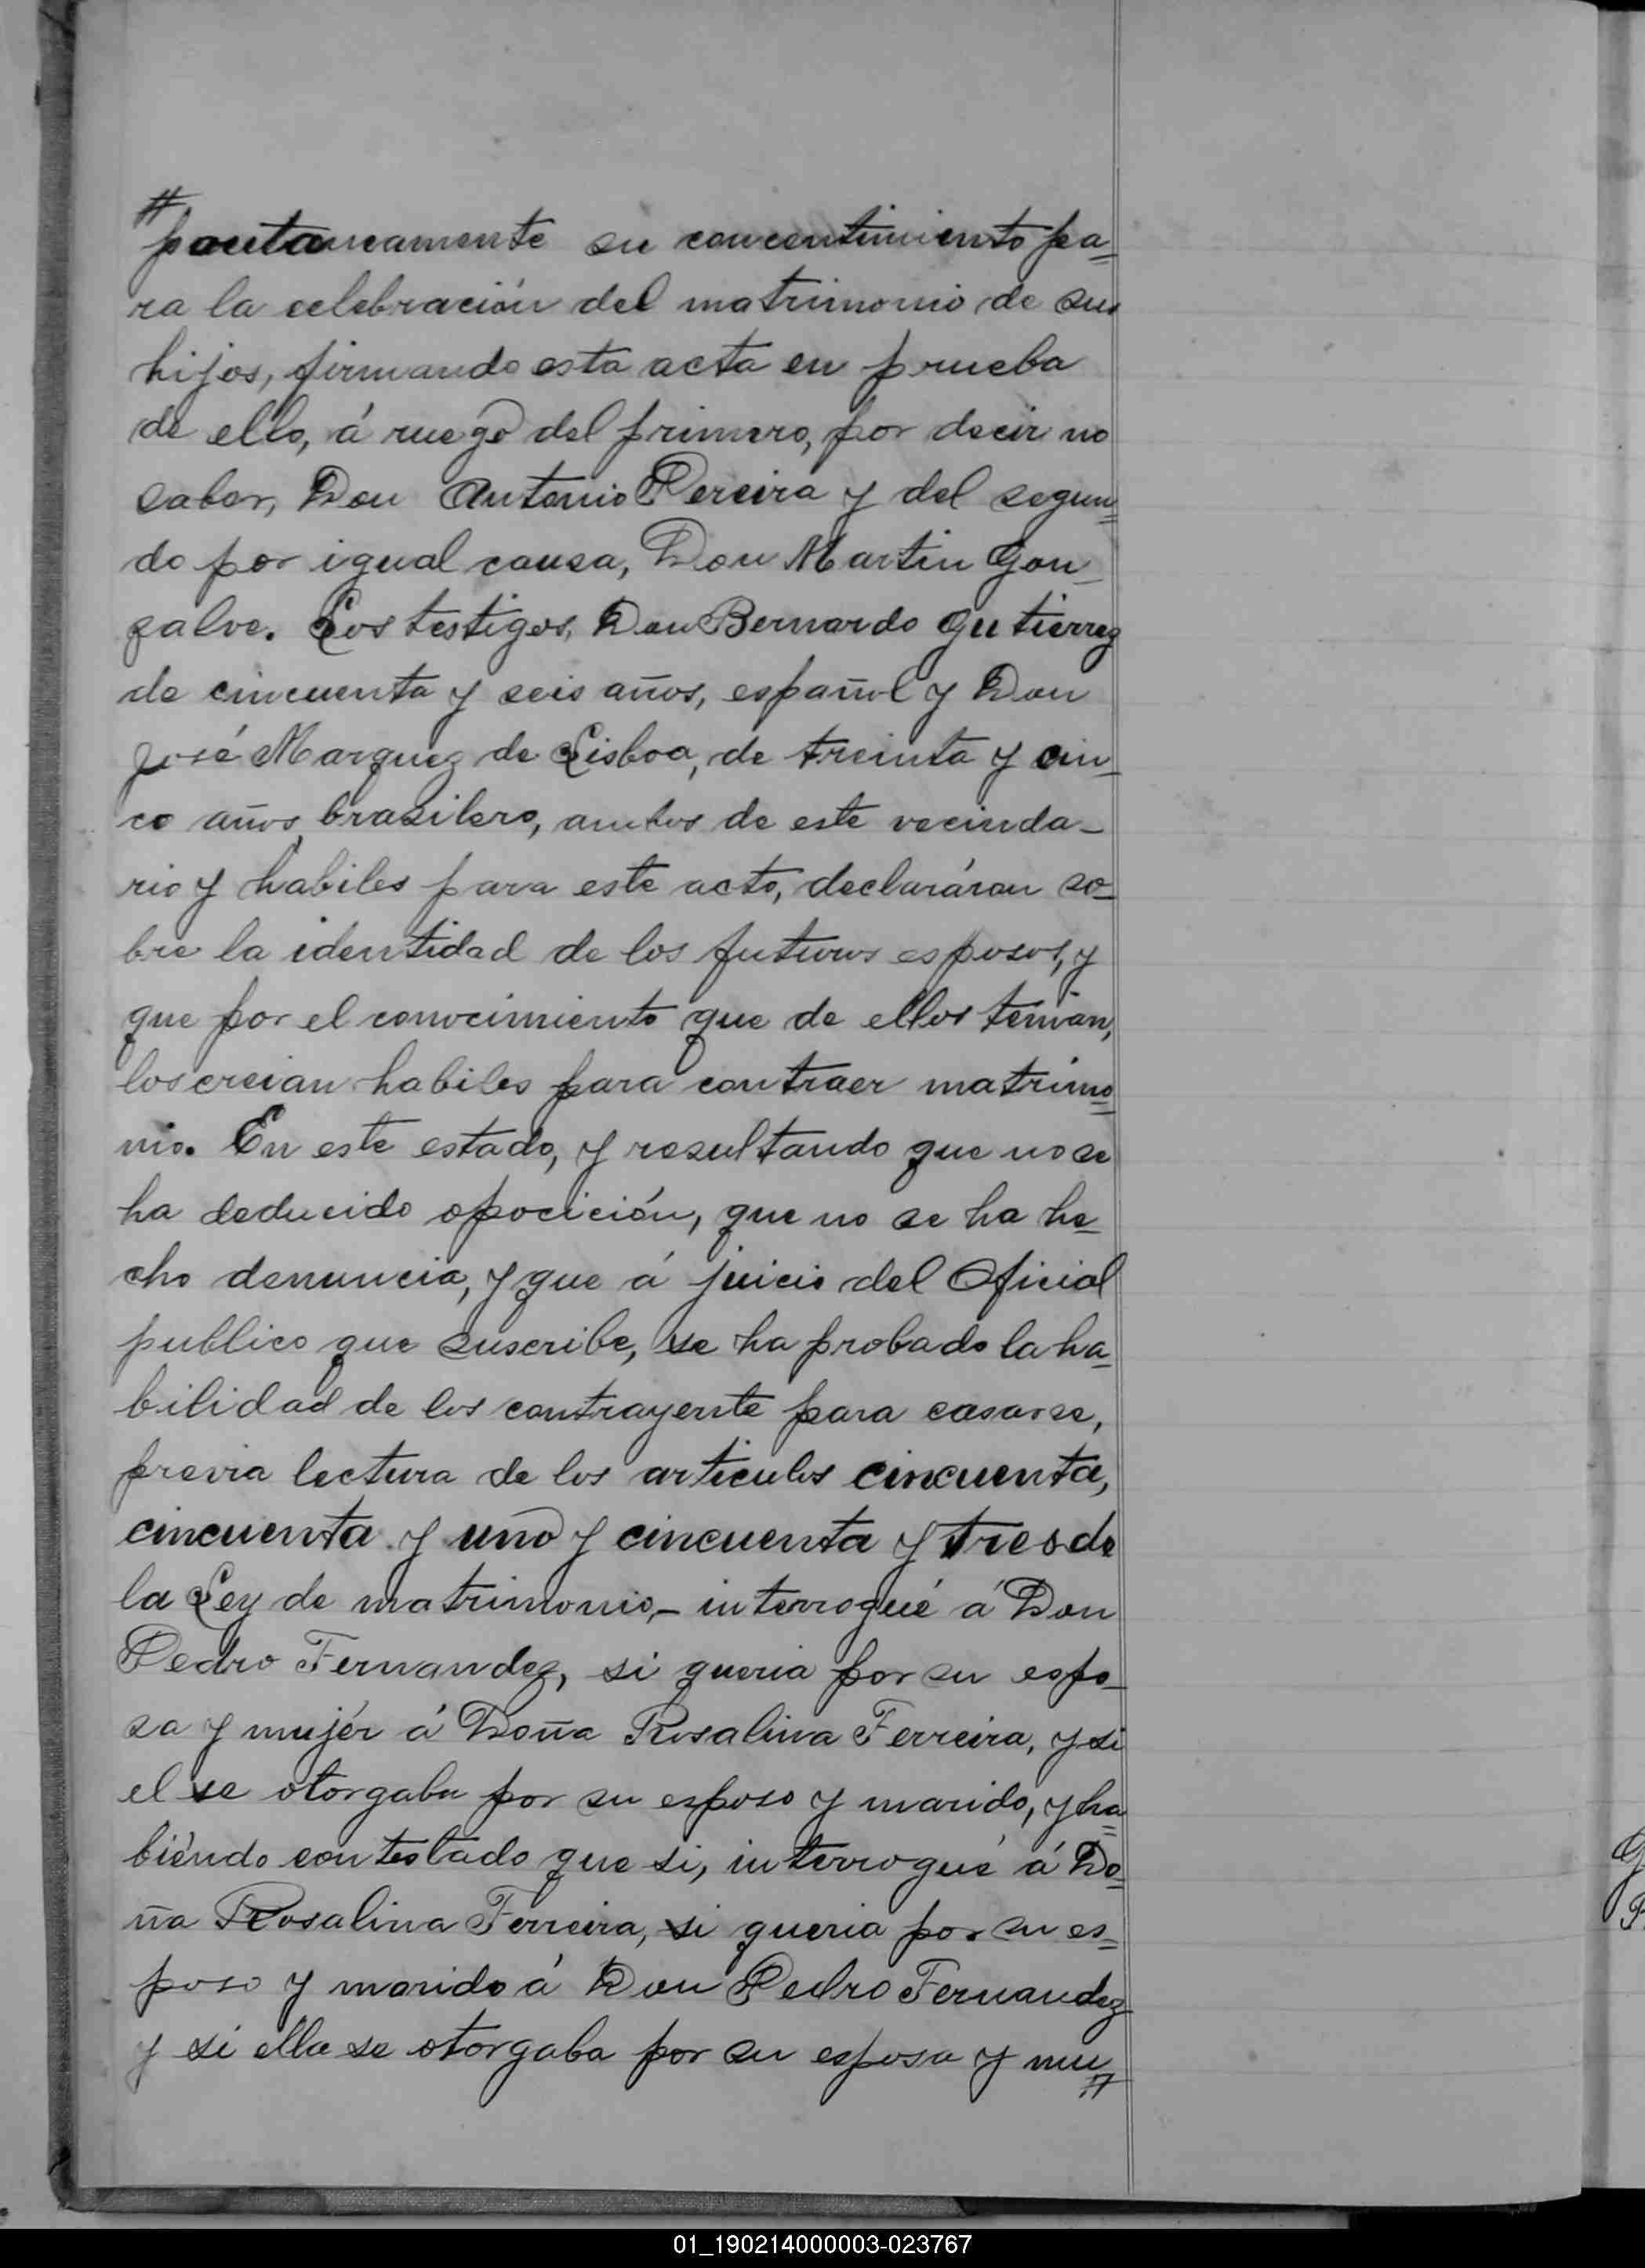 #
pontaneamente su concentimiento pa=
ra la celebración del matrimonio de sus
hijos, firmando esta acta en prueba
de ello, á ruego del primero, por decir no
saber, Don Antonio Pereira y del segun=
do por igual causa, Don Martin Gon_
zalve. Los testigos, Don Bernardo Gutierrez
de cincuenta y seis años, español y Don
José Marquez de Lisboa, de treinta y cin_
co años, brasilero, ambos de este vecinda_
rio y hábiles para este acto, declaráron so_
bre la identidad de los futuros esposos, y
que por el conocimiento que de ellos tenian,
los creian habiles para contraer matrimo=
nio. En este estado, y resultando que no se
ha deducido oposición, que no se ha he_
cho denuncia, y que á juicio del Oficial
publico que suscribe, se ha probado la ha_
bilidad de los contrayente para casarse,
previa lectura de los articulos cincuenta,
cincuenta y uno y cincuenta y tres de
la Ley de matrimonio,_ interrogué á Don
Pedro Fernandez, si queria por su espo_
sa y mujér á Doña Rosalina Ferreira, y si
el se otorgaba por su esposo y marido, y ha=
biéndo contestado que si, interrogué á Do=
ña Rosalina Ferreira, si queria por su es=
poso y marido á Don Pedro Fernandez
y si ella se otorgaba por su esposa y mu
#
01_190214000003-023767